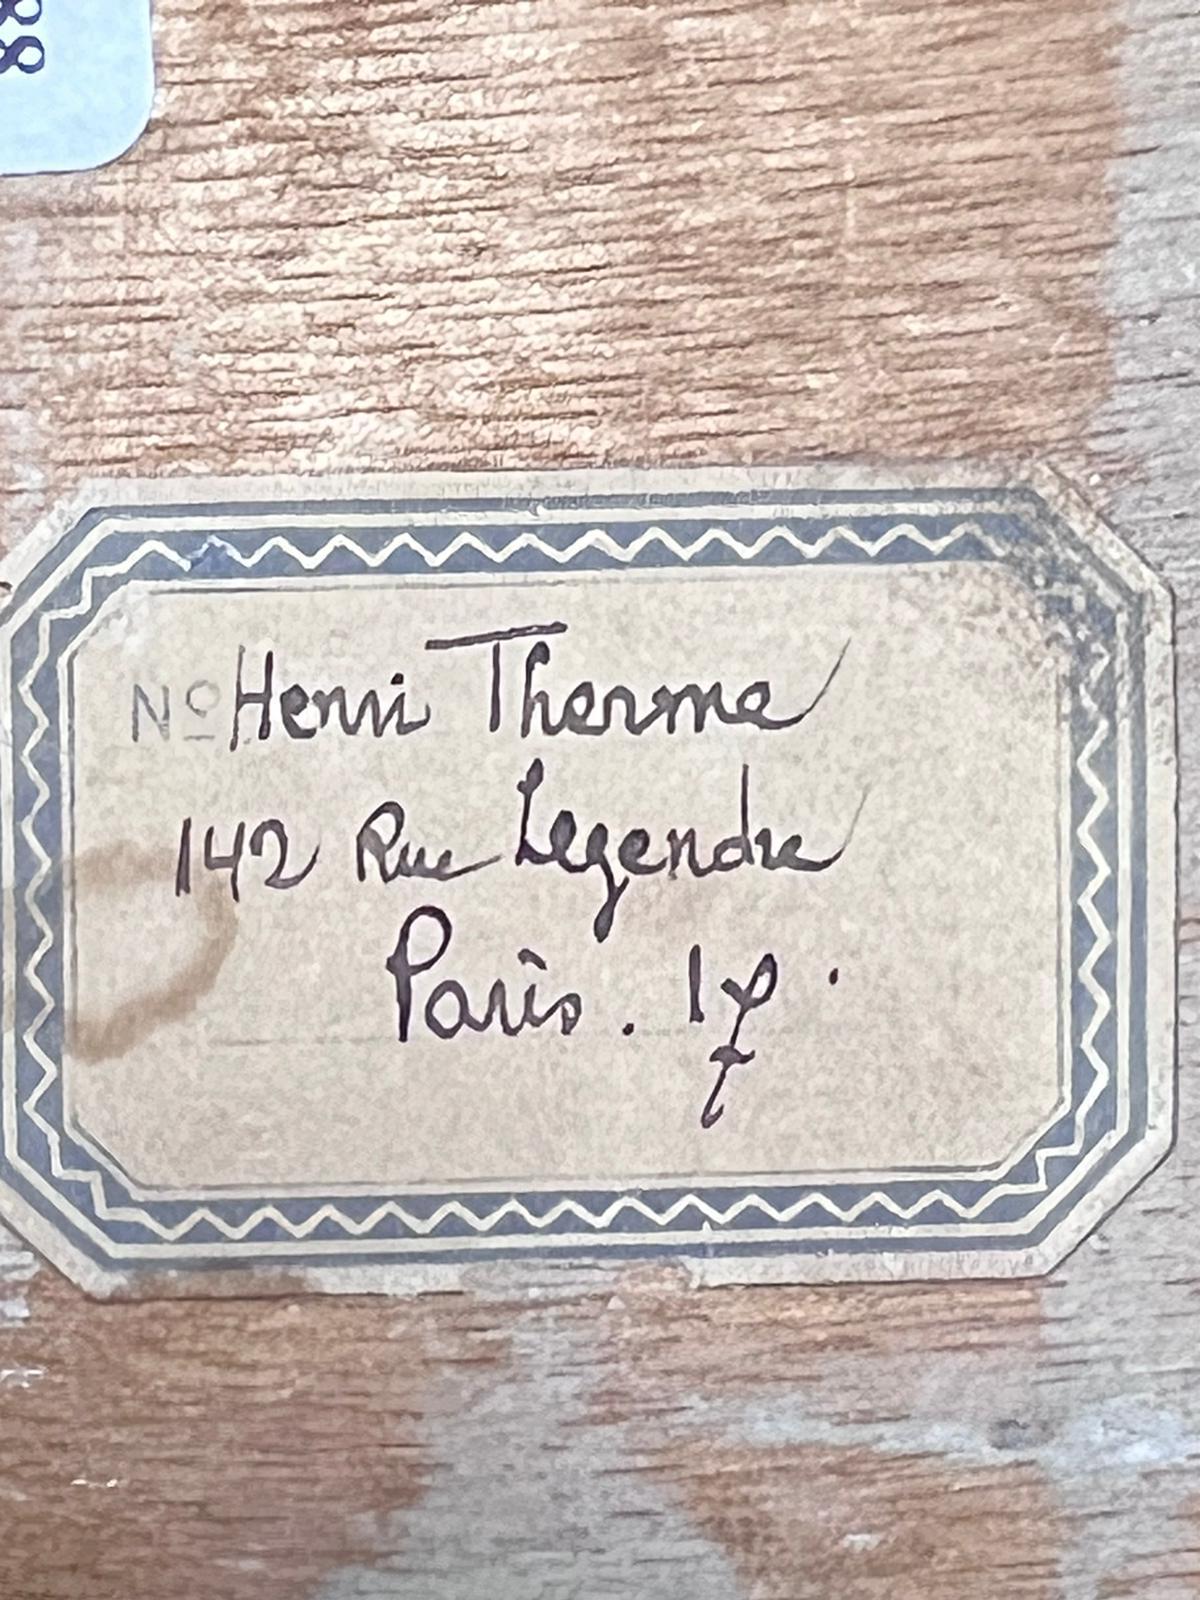 88
Nº Henri Therme
142 Rue Legendre
Paris. 17.